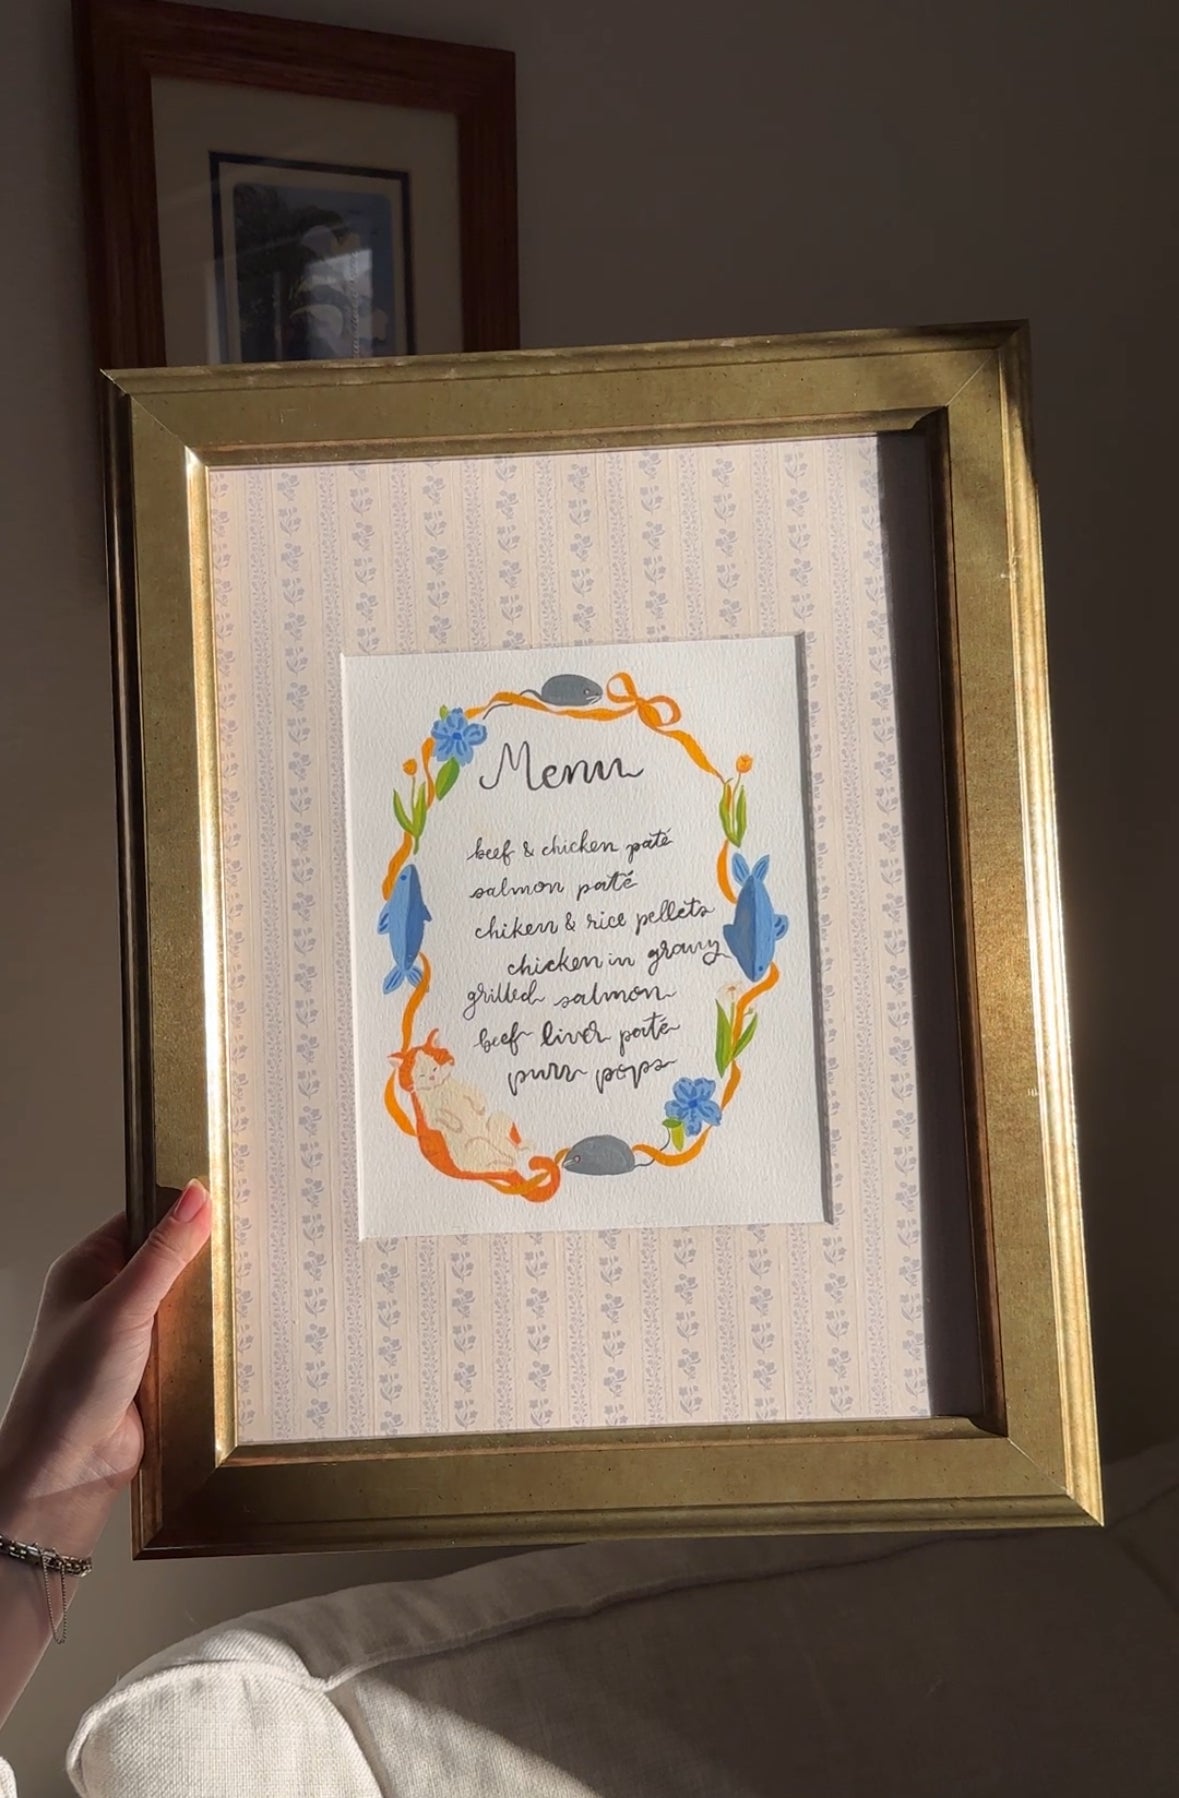 Menu
beef & chicken paté
salmon paté
chiken & rice pellets
chicken in gravy
grilled salmon
beef liver paté
purr pops